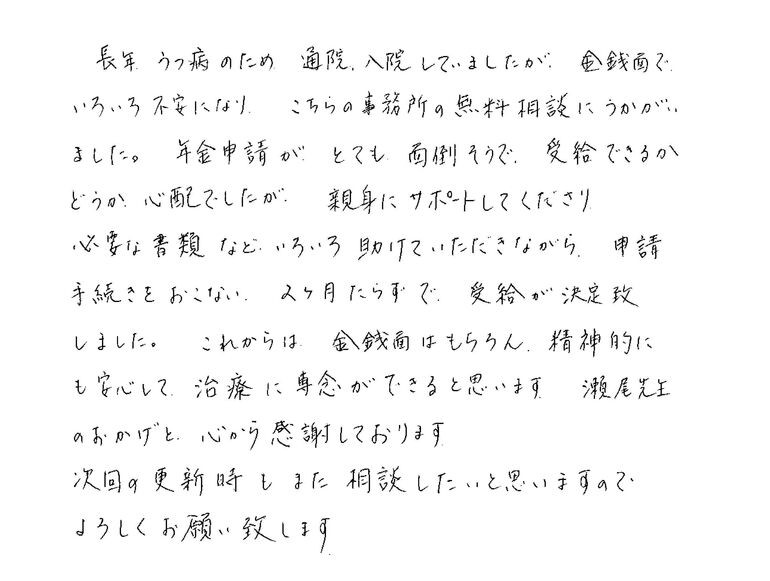 長年 うつ病のため 通院、入院していましたが、金銭面で
いろいろ不安になり、こちらの事務所の無料相談にうかがい
ました。年金申請が とても 面倒そうで、受給できるか
どうか 心配でしたが、親身に サポートしてくださり
必要な書類 など、いろいろ 助けていただきながら、申請
手続きを おこない、2ヶ月たらずで、受給が決定致
しました。これからは 金銭面はもちろん、精神的に
も安心して 治療に専念ができると思います 瀬尾先生
のおかげと、心から感謝しております
次回の更新時もまた相談したいと思いますので
よろしくお願い致します